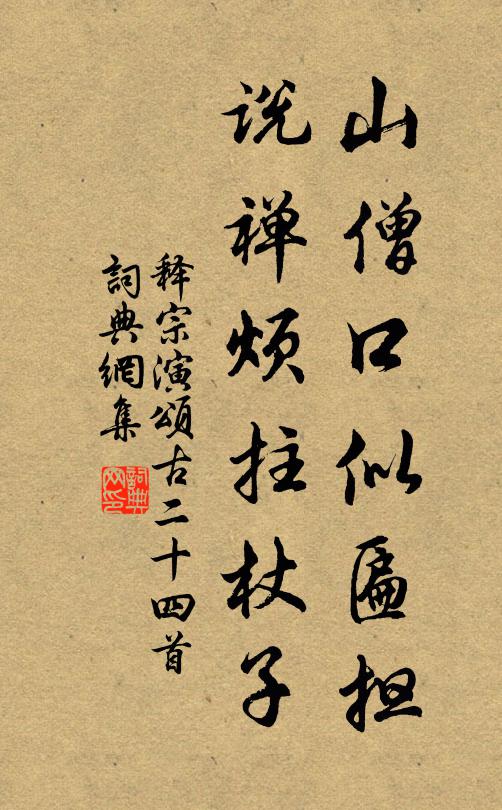 山僧口似匾担
说禅烦拄杖子
释宗演颂古二十四首
詞典網集
詞典網印